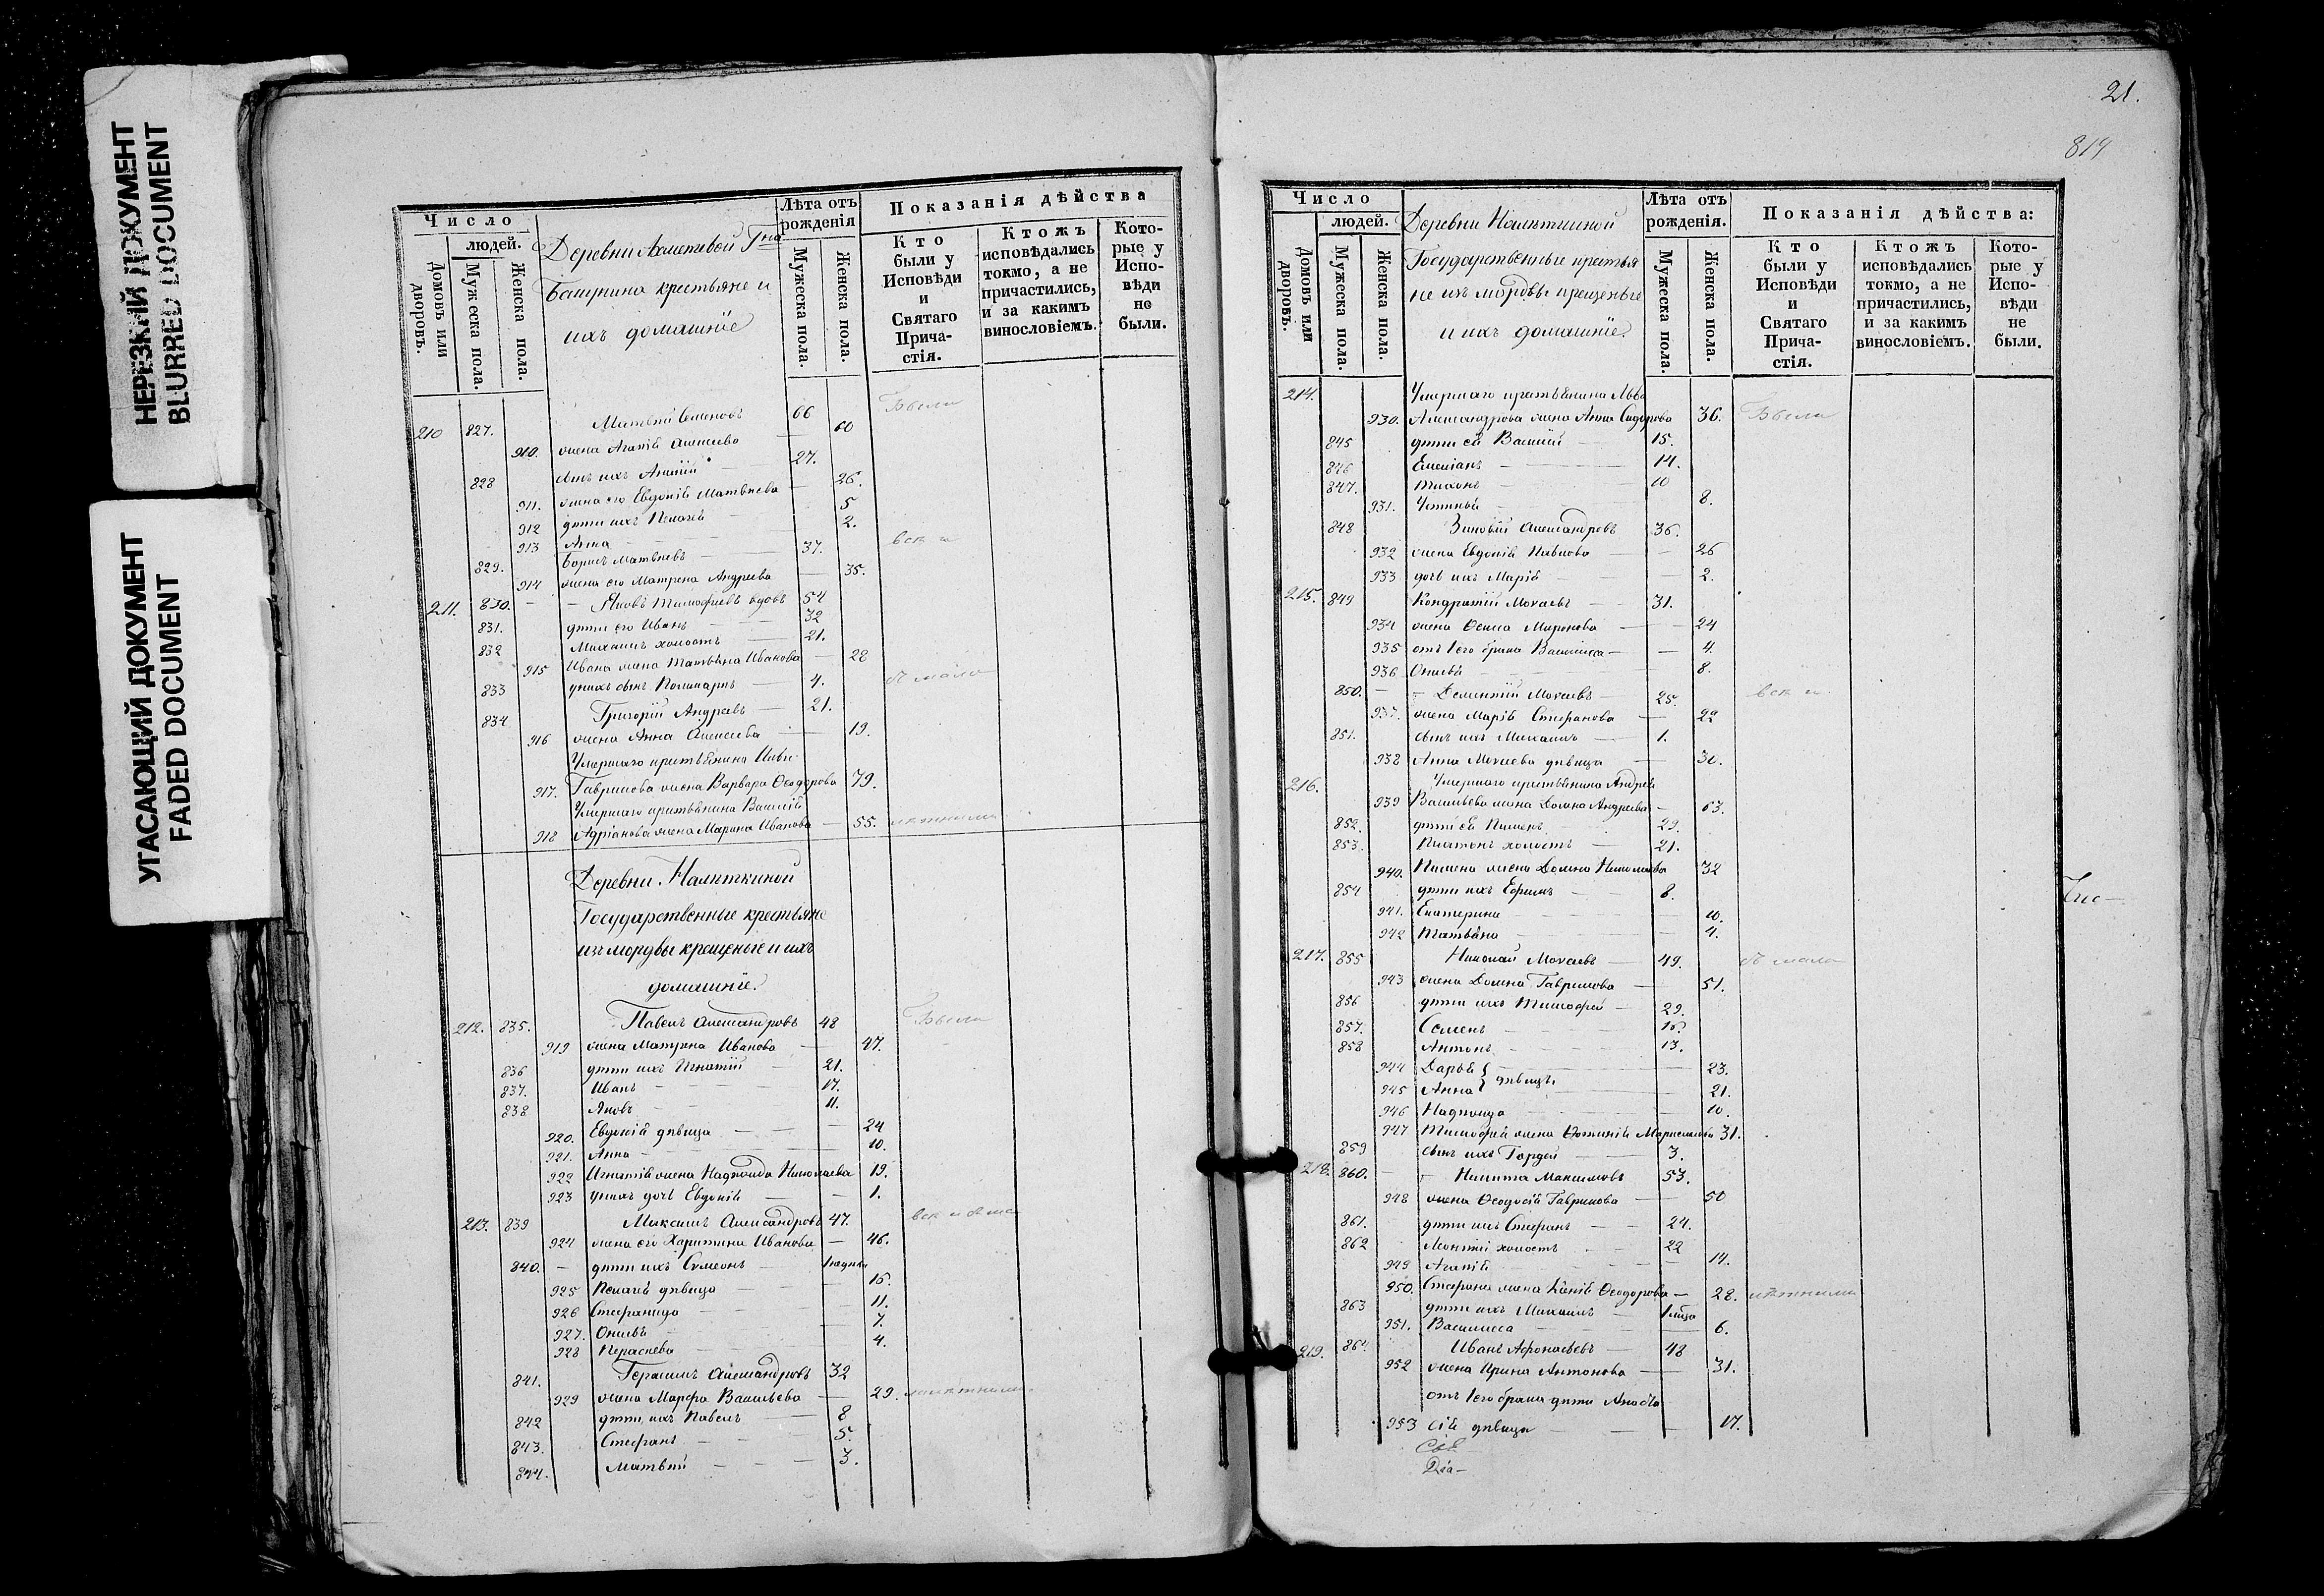 НЕРЕЗКИЙ ДОКУМЕНТ
BLURRED DOCUMENT
УГАСАЮЩИЙ ДОКУМЕНТ
FADED DOCUMENT
Число
людей.
Домовъ или дворовъ.
Мужеска пола.
Женска пола.
Деревни Гна
крестьяне и
ихъ домашніе
Лѣта отъ рожденія
Мужеска пола.
Женска пола.
Показанія дѣйства
Кто были у Исповѣди и Святаго Прича-стія.
Ктожъ исповѣдались токмо, а не причастились, и за какимъ винословіемъ.
Кото-рые у Испо-вѣди не были.
210 827. Матвѣй Семеновъ 66 Были
910. жена Агафія Алексѣева — 60
828 сынъ ихъ — 27.
911. жена его Евдокія Матвѣева — 26.
912 дѣти ихъ — 5
913 Анна — 2.
829. Борисъ Матвѣевъ — 37.
914 жена его Матрена Андреева — 35.
211. 830. — Яковъ Тимофеевъ вдовъ 54
831. дѣти его Иванъ — 32
832 Михаилъ холостъ — 21.
915 Ивана жена Татьяна Иванова — 28
833 у нихъ сынъ — 4.
834 Григорій Андреевъ — 21.
916 жена Анна Алексѣева — 19.
Умершаго крестьянина
917. Гаврилова жена Варвара Ѳеодорова 79.
Умершаго крестьянина Василія
918 Адріанова жена Марина Иванова — 55.
Деревни Налѣткиной
Государственные крестьяне
изъ мордвы крещеные и ихъ
домашніе.
212. 835. Павелъ Александровъ 48 Были
919 жена Матрена Иванова — 47.
836 дѣти ихъ Игнатій — 21.
837. Иванъ — 17.
838 Яковъ — 11.
920. Евдокія дѣвица — 24
921. Анна — 10.
922 Игнатія жена Надежда Николаева 19.
923 у нихъ дочь Евдокія — 1.
213. 839 Максимъ Александровъ 47.
924 жена его Харитина Иванова — 46.
840. — дѣти ихъ Сѵмеонъ —
925 Пелагія дѣвица — 15.
926 Стефанида — 11.
927. — 7.
928 — 4.
841. Герасимъ Александровъ 32
929 жена Марфа Васильева — 29.
842 дѣти ихъ Павелъ — 8
843. Стефанъ — 5.
844. Матвѣй — 3.
21.
819
Число
людей.
Домовъ или дворовъ.
Мужеска пола.
Женска пола.
Деревни Налѣткиной
Государственные крестья
не изъ мордвы крещеные
и ихъ домашніе.
Лѣта отъ рожденія.
Мужеска пола.
Женска пола.
Показанія дѣйства:
Кто были у Исповѣди и Святаго Прича-стія.
Ктожъ исповѣдались токмо, а не причастились, и за какимъ винословіемъ.
Кото-рые у Испо-вѣди не были.
214. Умершаго крестьянина Льва
930. Александрова жена Анна Сидорова 36. Были
845 дѣти ея Василій — 15.
846 Емеліанъ — 14.
847. Тихонъ — 10
931. Устинья — 8.
848 Зиновій Александровъ 36.
932 жена Евдокія Павлова — 26
933 дочь ихъ Марія — 2.
215. 849 Кондратій Мокеевъ — 31.
934 жена Миронова — 24
935 отъ 1го брака Василиса — 4.
936 — 8.
850. — Дементій Мокеевъ — 25.
937. жена Марія Стефанова — 22
851. сынъ ихъ Михаилъ — 1.
938 Анна Мокеева дѣвица — 30.
216. Умершаго крестьянина Андрея
939 Васильева жена Домна Андреева — 63.
852. дѣти ея Пименъ — 29.
853. Платонъ холостъ — 21.
940. Пимена жена Домна Николаева 32
854 дѣти ихъ Ефимъ — 8.
941. Екатерина — 10.
942 Татьяна — 4.
Чис—
217. 855 Николай Мокеевъ — 49.
943 жена Домна Гаврилова — 51.
856 дѣти ихъ Тимофей — 29.
857. Семенъ —
858 Антонъ — 13.
944 Дарья — 23.
дѣвицы
945 Анна — 21.
946 Надежда — 10.
947 Тимофея жена 31.
859 сынъ ихъ Гордей — 3.
218. 860. — Никита Максимовъ 53.
948 жена Ѳеодосія Гаврилова — 50
861. дѣти ихъ Стефанъ — 24.
862 Леонтій холостъ — 22
949 Агафія — 14.
950. Стефана жена Ксенія Ѳеодорова — 28.
863 дѣти ихъ Михаилъ —
951. Василисса — 6.
219. 864 Иванъ Афонасьевъ — 48
952 жена Ирина Антонова — 31.
отъ 1го брака дѣти Анаста
953 сія дѣвица — 17.